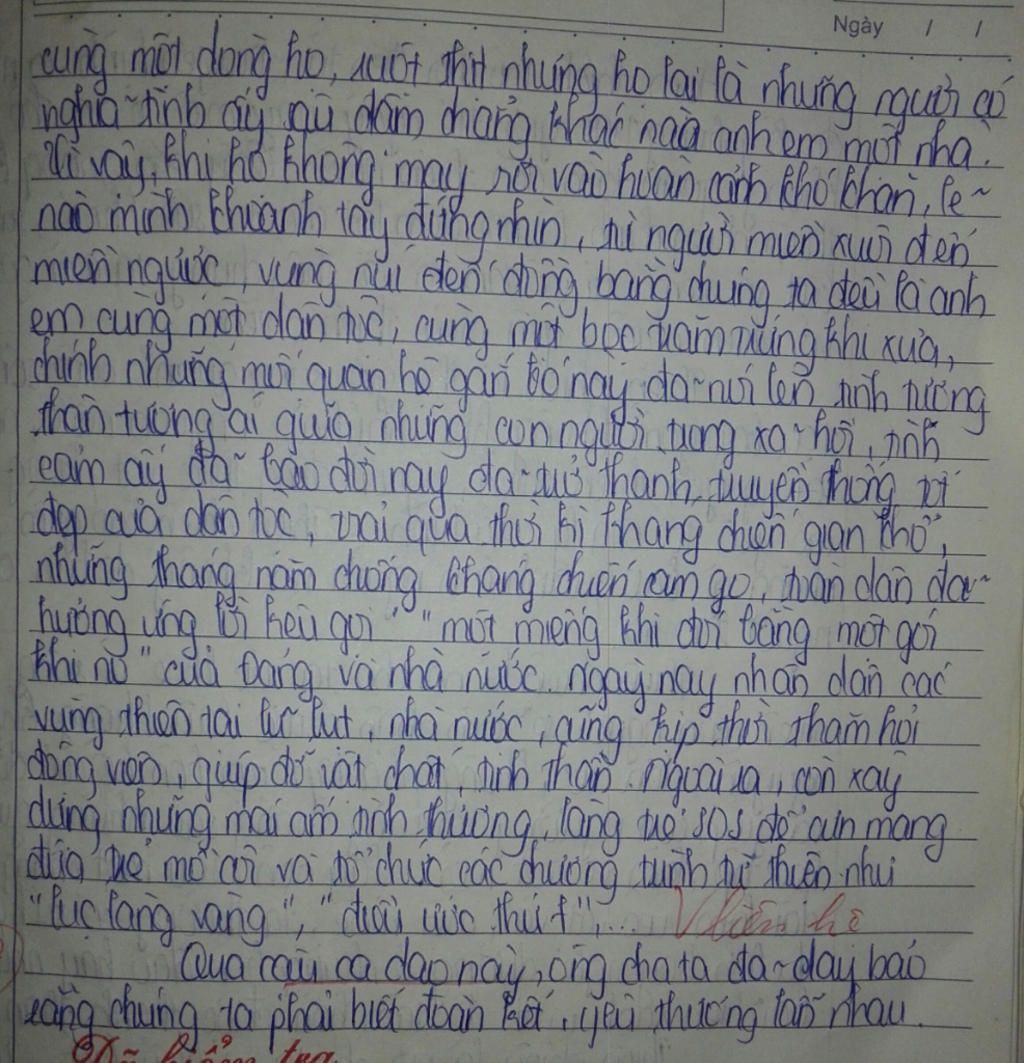 Ngày / /
cùng một dòng họ, ruột thịt nhưng họ lại là những người có
nghĩa tình ấy gũ dăm chẳng khác naà anh em một nhà.
Vì vậy, khi họ không may rơi vào hoàn cảnh khó khăn, lẽ
nào mình khoanh tay đứng nhìn, từ người miền xuôi đến
miền ngược, vùng núi đến đồng bằng chúng ta đều là anh
em cùng một dân tộc, cùng một bọc trăm trứng khi xưa,
chính những mối quan hệ gắn bó này đã nói lên tình tương
thân tương ái giữa những con người trong xã hội, tình
cảm ấy đã bao đời nay đã trở thành truyền thống tốt
đẹp của dân tộc, trải qua thời kì kháng chiến gian khổ,
những tháng năm chống kháng chiến cam go, toàn dân đã
hưởng ứng lời kêu gọi "một miếng khi đói bằng một gói
khi no" của Đảng và nhà nước. ngày nay nhân dân các
vùng thiên tai lũ lụt, nhà nước, cũng kịp thời thăm hỏi
động viên, giúp đỡ vật chất, tinh thần. Ngoài ra, còn xây
dựng những mái ấm tình thương, làng trẻ SOS để cưu mang
đứa trẻ mồ côi và tổ chức các chương trình từ thiện như
"lục lạng vàng", "điều ước thứ 7",... V liên hệ
Qua câu ca dao này, ông cha ta đã dạy bảo
rằng chúng ta phải biết đoàn kết, yêu thương lẫn nhau.
Đã kiểm tra